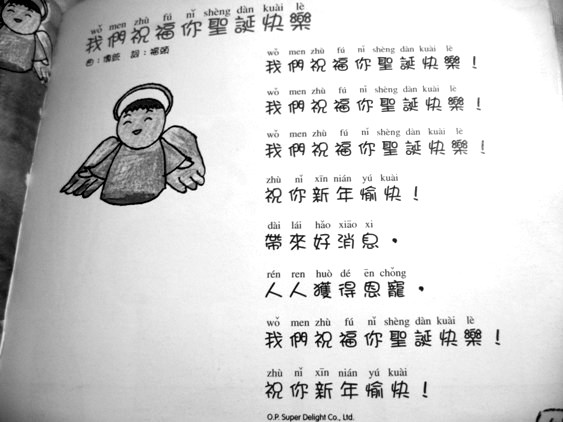 wǒ men zhù fú nǐ shèng dàn kuài lè
我們祝福你聖誕快樂
wǒ men zhù fú nǐ shèng dàn kuài lè
我們祝福你聖誕快樂！
wǒ men zhù fú nǐ shèng dàn kuài lè
我們祝福你聖誕快樂！
wǒ men zhù fú nǐ shèng dàn kuài lè
我們祝福你聖誕快樂！
zhù nǐ xīn nián yú kuài
祝你新年愉快！
dài lái hǎo xiāo xi
帶來好消息。
rén ren huò dé ēn chǒng
人人獲得恩寵。
wǒ men zhù fú nǐ shèng dàn kuài lè
我們祝福你聖誕快樂！
zhù nǐ xīn nián yú kuài
祝你新年愉快！
O.P. Super Delight Co., Ltd.